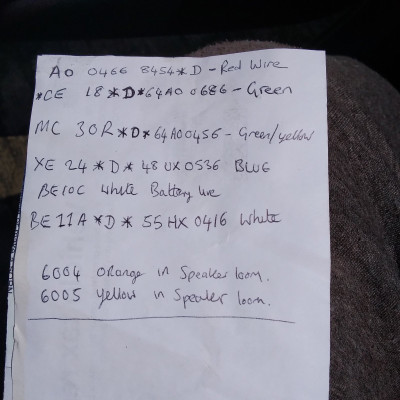 AO 0466 8454*D - Red Wire
*CE 18*D*64AO 0686 - Green
MC 30R*D*64A00456 - Green/yellow
XE 24*D*48UX0536 BLUE
BE10C White Battery live
BE11A*D*55HX0416 White
6004 orange in Speaker loom.
6005 yellow in Speaker loom.